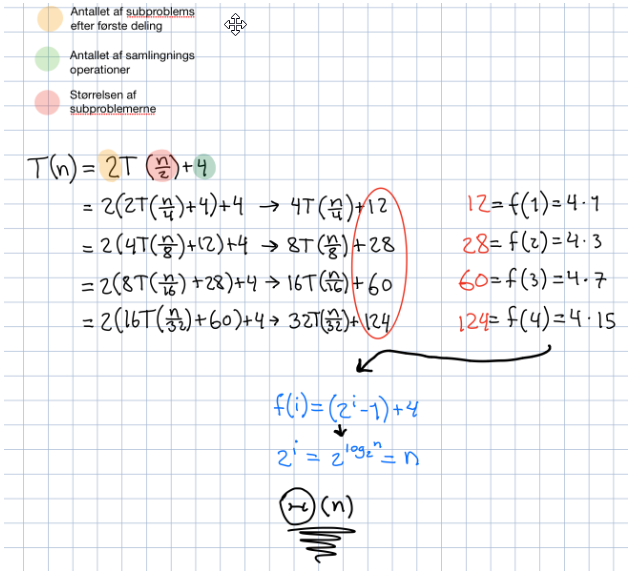 Antallet af subproblems
efter første deling
Antallet af samlingnings
operationer
Størrelsen af
subproblemerne
T(n) = 2T (n/2) + 4
= 2(2T(n/4)+4)+4 → 4T(n/4)+12
12 = f(1) = 4·1
= 2(4T(n/8)+12)+4 → 8T(n/8)+28
28 = f(2) = 4·3
= 2(8T(n/16)+28)+4 → 16T(n/16)+60
60 = f(3) = 4·7
= 2(16T(n/32)+60)+4 → 32T(n/32)+124
124 = f(4) = 4·15
f(i) = (2^i-1)+4
2^i = 2^log₂n = n
Θ(n)